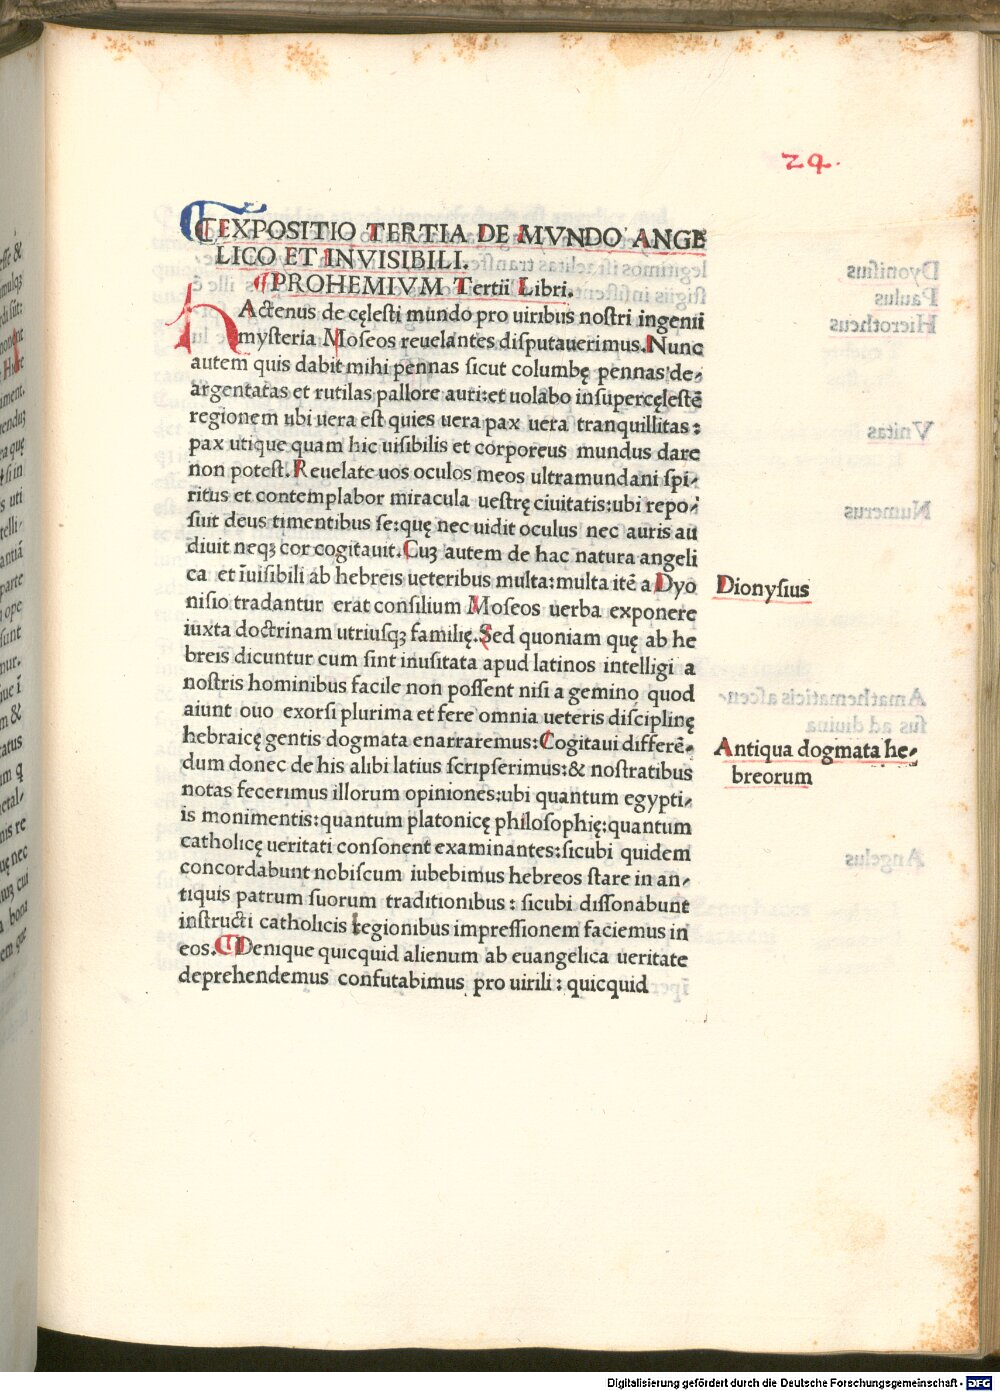 24.
EXPOSITIO TERTIA DE MVNDO ANGE
LICO ET INVISIBILI.
¶PROHEMIVM Tertii Libri.
HActenus de cęlesti mundo pro uiribus nostri ingenii
mysteria Moseos reuelantes disputauerimus. Nunc
autem quis dabit mihi pennas sicut columbę pennas de⸗
argentatas et rutilas pallore auri: et uolabo insupercęlestē
regionem ubi uera est quies uera pax uera tranquillitas:
pax utique quam hic uisibilis et corporeus mundus dare
non potest. Reuelate uos oculos meos ultramundani spi⸗
ritus et contemplabor miracula uestrę ciuitatis: ubi repo⸗
suit deus timentibus se: quę nec uidit oculus nec auris au
diuit neqꝫ cor cogitauit. Cuꝫ autem de hac natura angeli
ca et īuisibili ab hebreis ueteribus multa: multa itē a Dyo
nisio tradantur erat consilium Moseos uerba exponere
iuxta doctrinam utriusqꝫ familię. Sed quoniam quę ab he
breis dicuntur cum sint inusitata apud latinos intelligi a
nostris hominibus facile non possent nisi a gemino quod
aiunt ouo exorsi plurima et fere omnia ueteris disciplinę
hebraicę gentis dogmata enarraremus: Cogitaui differē⸗
dum donec de his alibi latius scripserimus: & nostratibus
notas fecerimus illorum opiniones: ubi quantum egypti⸗
is monimentis: quantum platonicę philosophię: quantum
catholicę ueritati consonent examinantes: sicubi quidem
concordabunt nobiscum iubebimus hebreos stare in an⸗
tiquis patrum suorum traditionibus: sicubi dissonabunt
instructi catholicis legionibus impressionem faciemus in
eos. Denique quicquid alienum ab euangelica ueritate
deprehendemus confutabimus pro uirili: quicquid
Dionysius
Antiqua dogmata he⸗
breorum
Digitalisierung gefördert durch die Deutsche Forschungsgemeinschaft - DFG